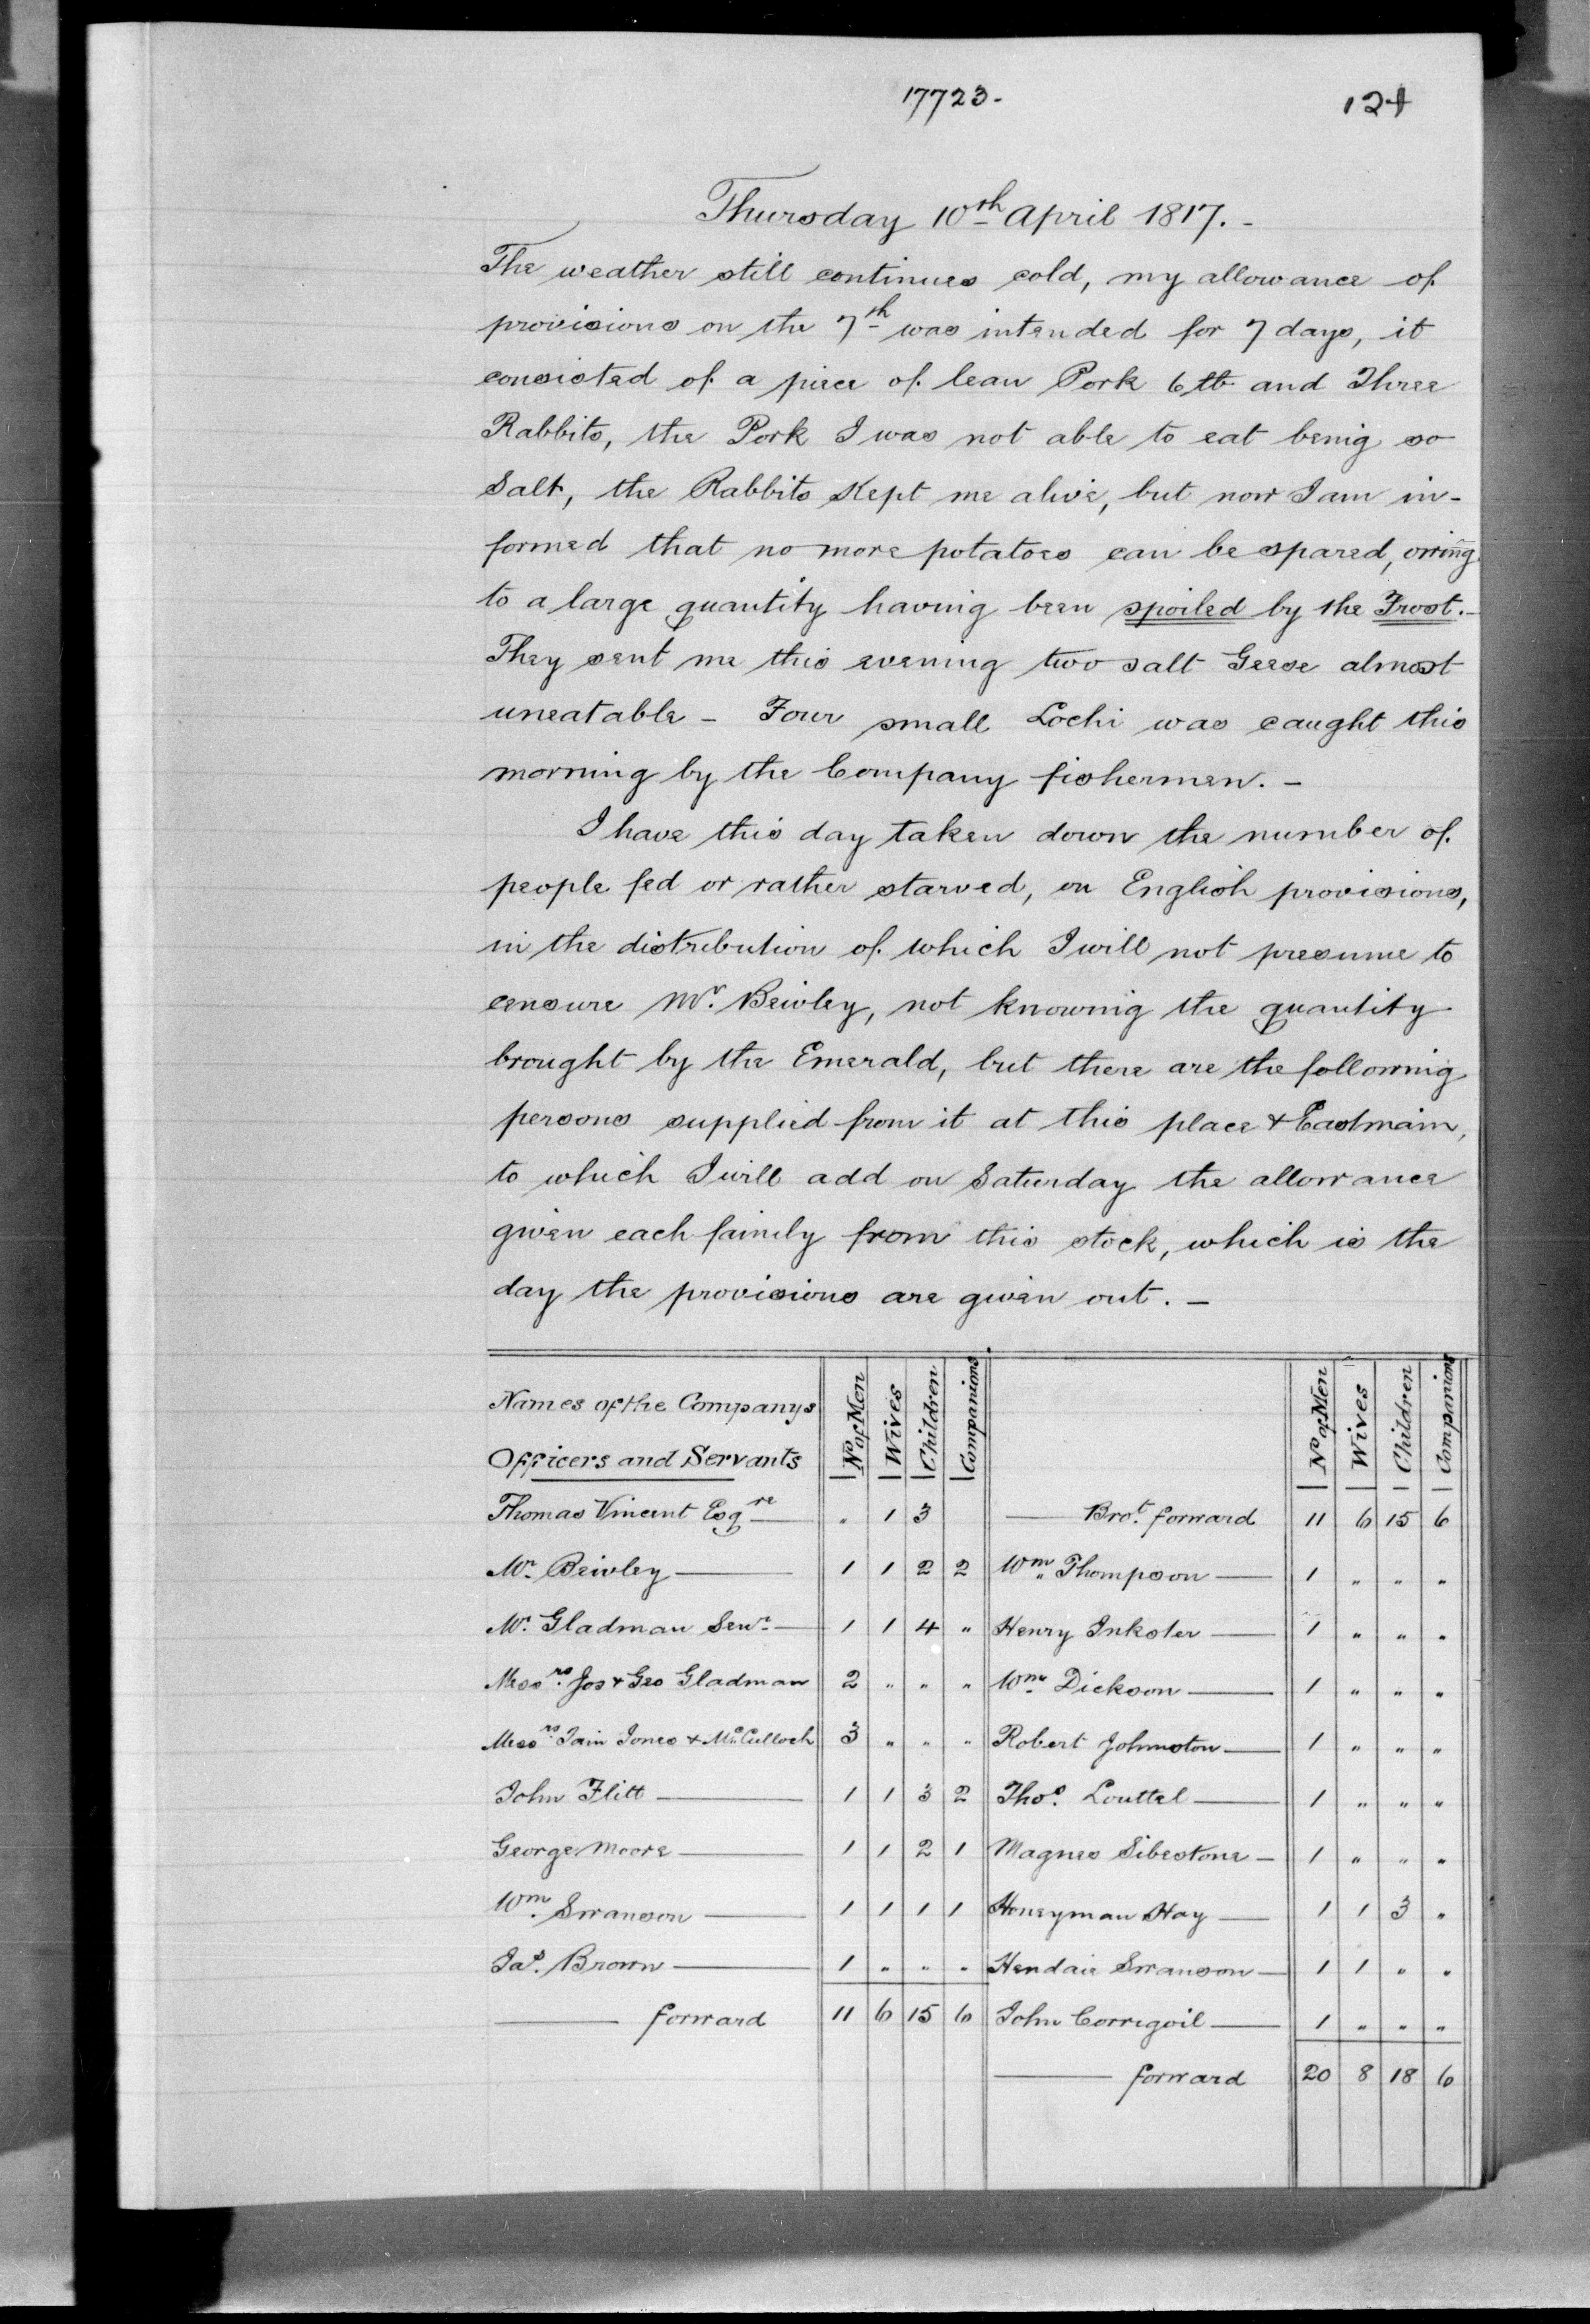 17723.
124
Thursday 10th April 1817.-
The weather still continues cold, my allowance of
provisions on the 7th was intended for 7 days, it
consisted of a piece of lean Pork 6 lb and Three
Rabbits, the Pork I was not able to eat being so
Salt, the Rabbits kept me alive, but now I am in-
formed that no more potatoes can be spared, owing
to a large quantity having been spoiled by the Frost.-
They sent me this evening two salt Geese almost
uneatable - Four small Lochi was caught this
morning by the Company fishermen. -
I have this day taken down the number of
people fed or rather starved, on English provisions,
in the distribution of which I will not presume to
censure Mr. Beioley, not knowing the quantity
brought by the Emerald, but there are the following
persons supplied from it at this place & Eastmain,
to which I will add on Saturday the allowance
given each family from this stock, which is the
day the provisions are given out. -
Names of the Companys Officers and Servants | No of Men | Wives | Children | Companions | | No of Men | Wives | Children | Companions
Thomas Vincent Esqre — | " | 1 | 3 | | — Brot. forward | 11 | 6 | 15 | 6
Mr. Beioley — | 1 | 1 | 2 | 2 | Wm. Thompson — | 1 | " | " | "
Mr. Gladman Senr. — | 1 | 1 | 4 | " | Henry Inkster — | 1 | " | " | "
Messrs. Jos & Geo Gladman | 2 | " | " | " | Wm. Dickson — | 1 | " | " | "
Messrs. Iain Jones & McCulloch | 3 | " | " | " | Robert Johnston — | 1 | " | " | "
John Flitt — | 1 | 1 | 3 | 2 | Thos. Louttel — | 1 | " | " | "
George Moore — | 1 | 1 | 2 | 1 | Magnes Sibestone — | 1 | " | " | "
Wm. Swanson — | 1 | 1 | 1 | 1 | Honeyman Hay — | 1 | 1 | 3 | "
Jas. Brown — | 1 | " | " | " | Hendaie Swanson — | 1 | 1 | " | "
— forward | 11 | 6 | 15 | 6 | John Corrigoil — | 1 | " | " | "
— forward | 20 | 8 | 18 | 6